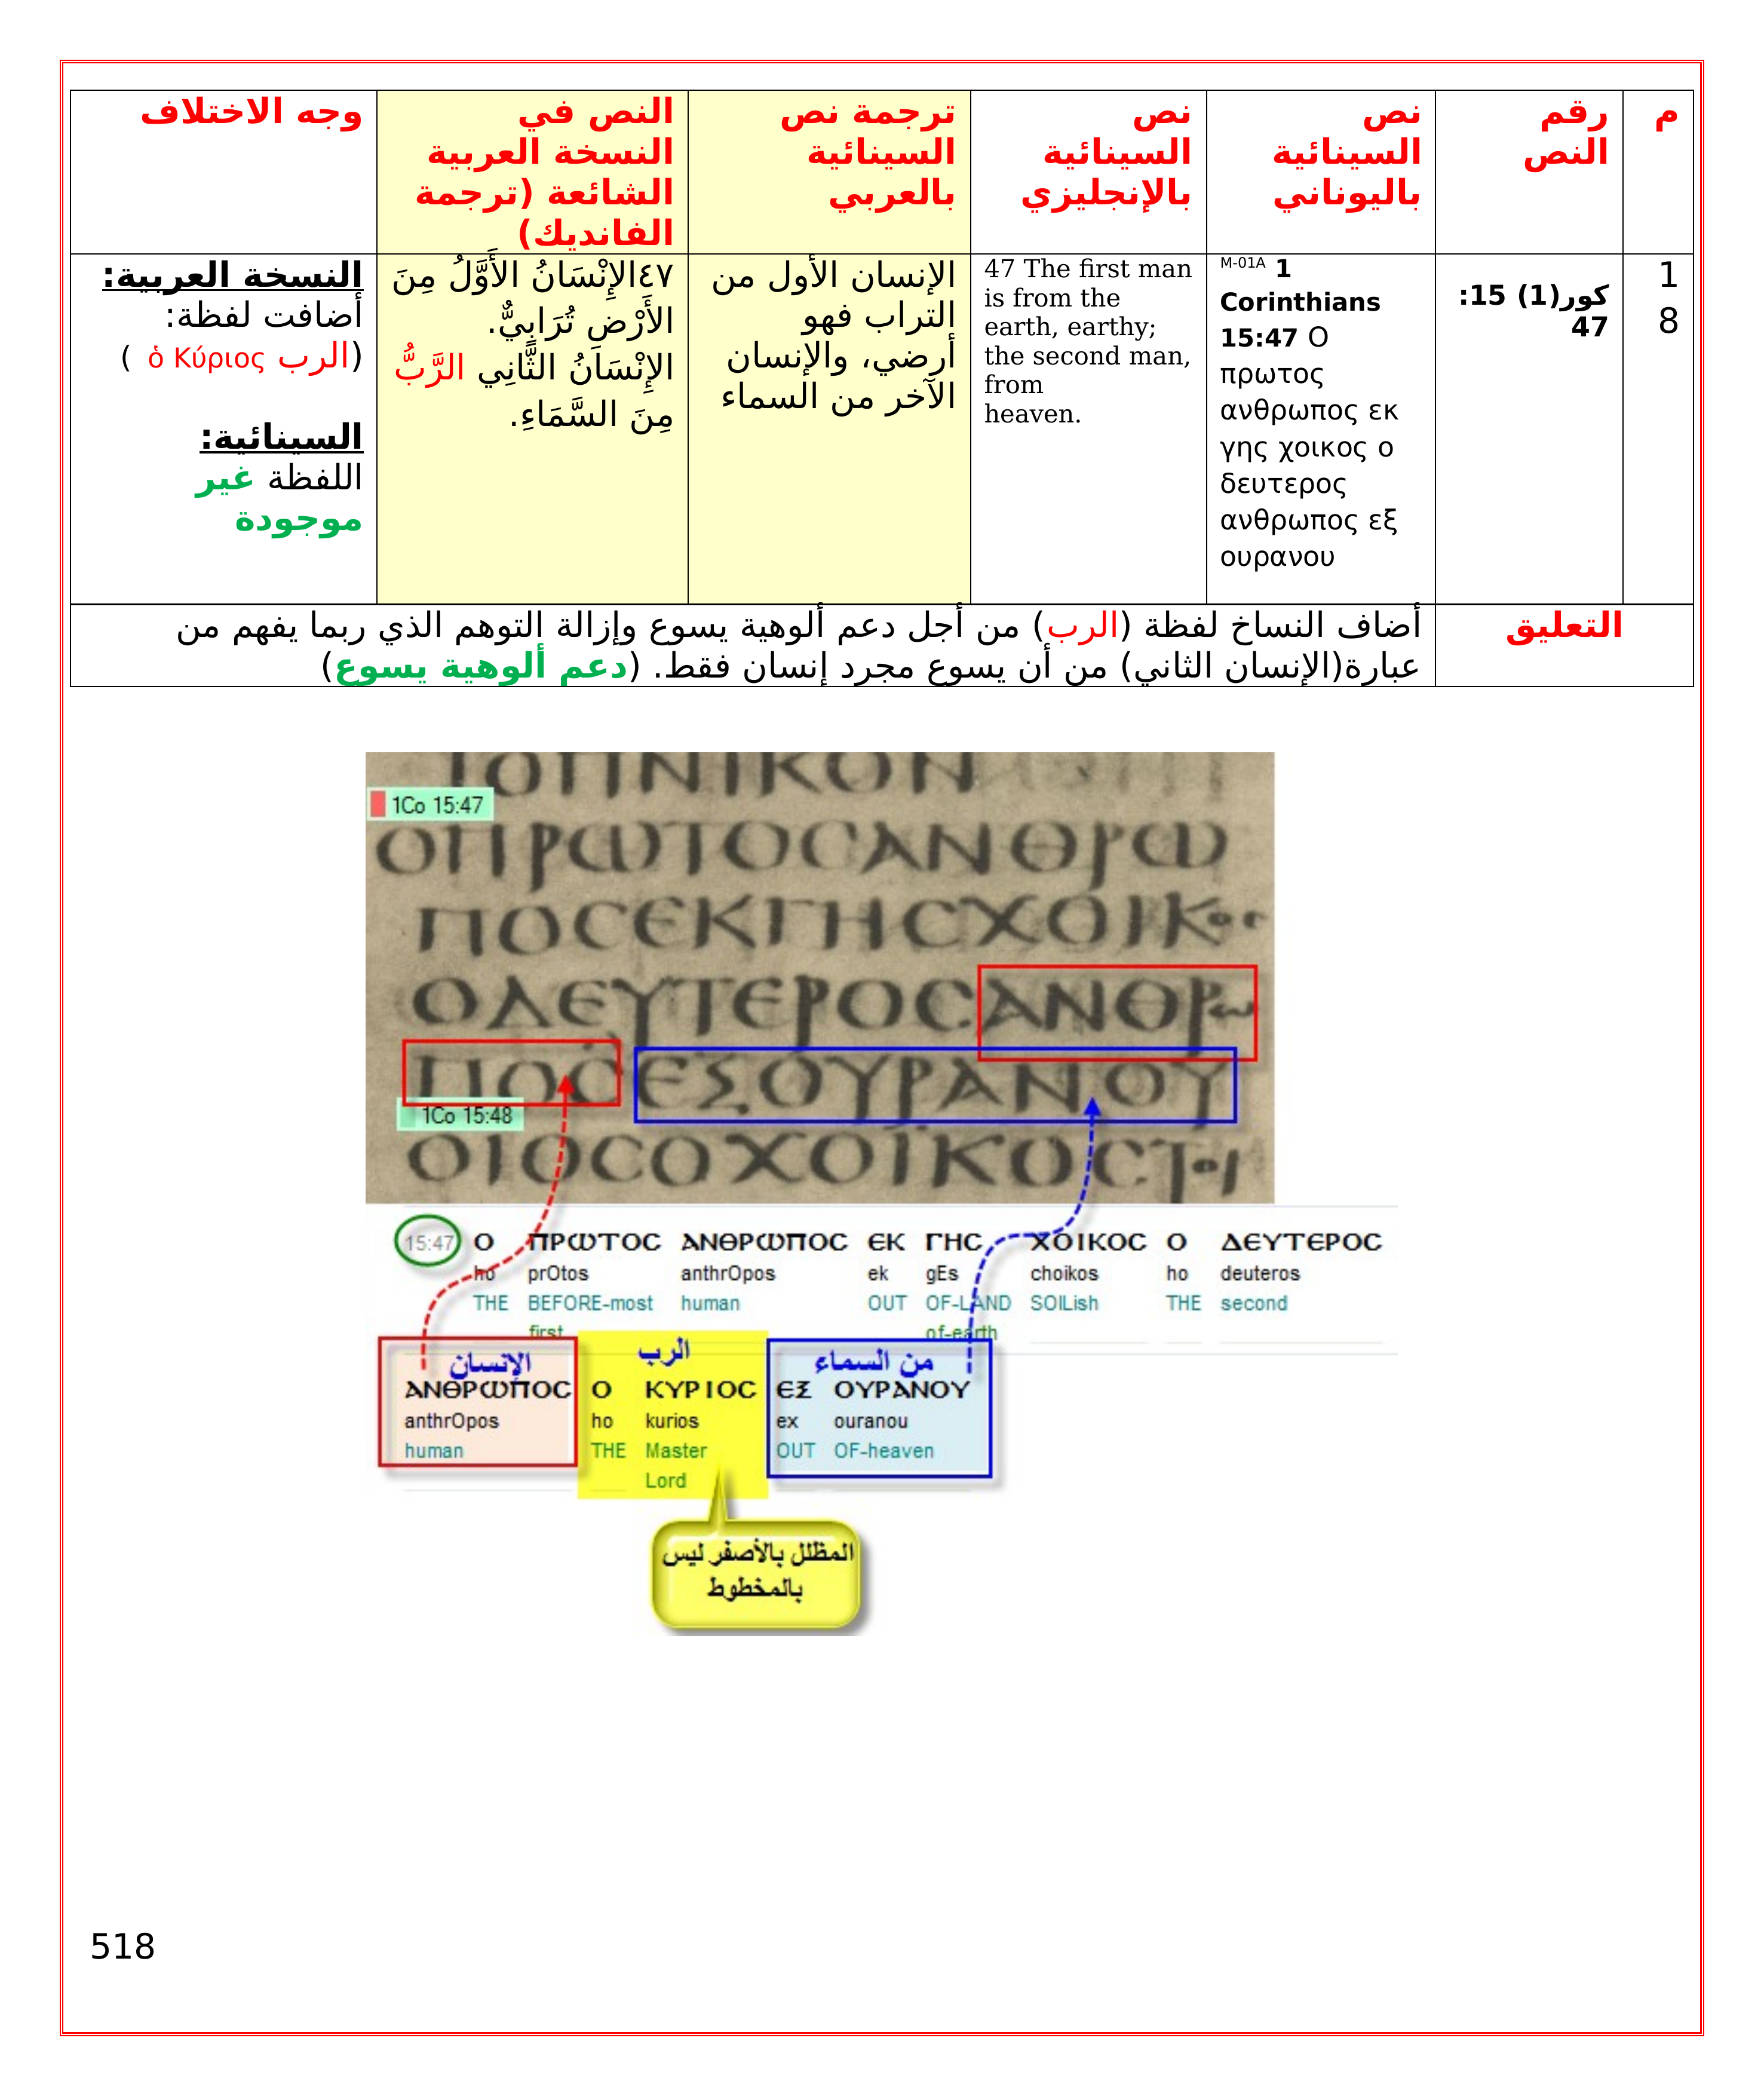 م
رقم
النص
نص
السينائية
باليوناني
نص
السينائية
بالإنجليزي
ترجمة نص
السينائية
بالعربي
النص في
النسخة العربية
الشائعة (ترجمة
الفانديك)
وجه الاختلاف
1
8
كور(1) 15:
47
M-01A 1
Corinthians
15:47 Ο
πρωτος
ανθρωπος εκ
γης χοικος ο
δευτερος
ανθρωπος εξ
ουρανου
47 The first man
is from the
earth, earthy;
the second man,
from
heaven.
الإنسان الأول من
التراب فهو
أرضي، والإنسان
الآخر من السماء
٤٧الإِنْسَانُ الأَوَّلُ مِنَ
الأَرْضِ تُرَابِيٌّ.
الإِنْسَانُ الثَّانِي الرَّبُّ
مِنَ السَّمَاءِ.
النسخة العربية:
أضافت لفظة:
(الرب ὁ Κύριος )
السينائية:
اللفظة غير
موجودة
التعليق
أضاف النساخ لفظة (الرب) من أجل دعم ألوهية يسوع وإزالة التوهم الذي ربما يفهم من
عبارة(الإنسان الثاني) من أن يسوع مجرد إنسان فقط. (دعم ألوهية يسوع)
1Co 15:47
ΟΠΡΩΤΟСΑΝΘΡΩ
ΠΟСΕΚΓΗСΧΟΙΚΟС
ΟΔΕΥΤΕΡΟСΑΝΘΡΩ
ΠΟСΕΞΟΥΡΑΝΟΥ
1Co 15:48
15:47 Ο ΠΡΩΤΟС ΑΝΘΡΩΠΟС ΕΚ ΓΗС ΧΟΙΚΟС Ο ΔΕΥΤΕΡΟС
ho prOtos anthrOpos ek gEs choikos ho deuteros
THE BEFORE-most human OUT OF-LAND SOILish THE second
first of-earth
الإنسان الرب من السماء
ΑΝΘΡΩΠΟС Ο ΚΥΡΙΟС ΕΞ ΟΥΡΑΝΟΥ
anthrOpos ho kurios ex ouranou
human THE Master OUT OF-heaven
Lord
المظلل بالأصفر ليس
بالمخطوط
518